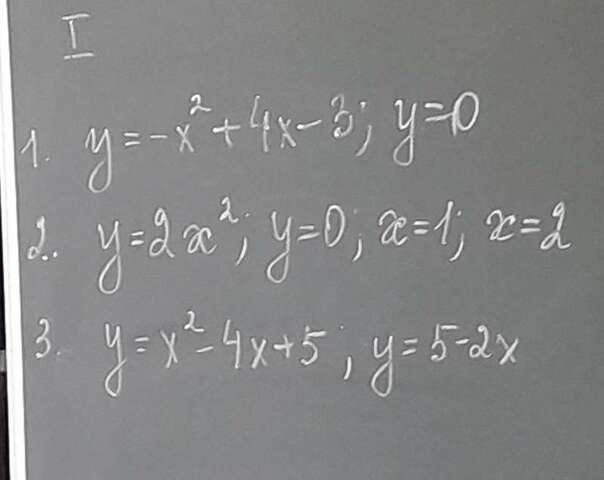 I
1. y=-x²+4x-3; y=0
2. y=2x²; y=0; x=1; x=2
3. y=x²-4x+5; y=5-2x